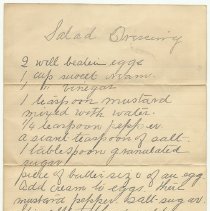 Salad Dressing
2 well beaten eggs
1 cup sweet cream
1 " vinegar
1 teaspoon mustard
mixed with water.
1/4 teaspoon pepper
a scant teaspoon of salt.
1 tablespoon granulated
sugar
piece of butter size of an egg
Add cream to eggs then
mustard pepper salt sugar